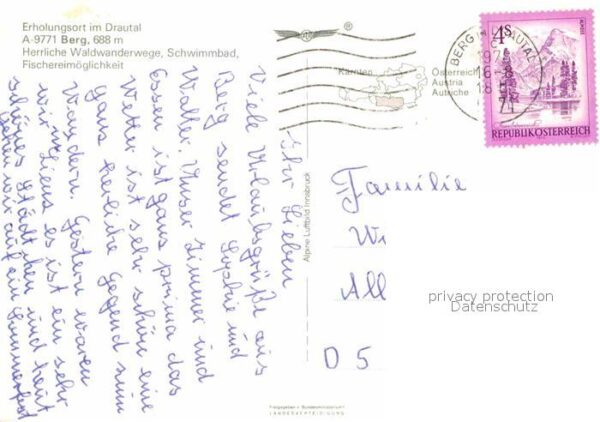 Erholungsort im Drautal
A-9771 Berg, 688 m
Herrliche Waldwanderwege, Schwimmbad,
Fischereimöglichkeit
Kärnten
Österreich
Austria
Autriche
BERG IM DRAUTAL
18
4S
REPUBLIK ÖSTERREICH
Ihr Lieben
Viele Urlaubsgrüße aus
Berg sendet Sophie und
Walter. Unser Zimmer und
Essen ist ganz prima das
Wetter ist sehr schön eine
ganz herrliche Gegend zum
Wandern. Gestern waren
wir in Lienz es ist ein sehr
schönes Städtchen und heut
gehen wir auf ein Sommerfest
Alpine Luftbild Innsbruck
Familie
Wi
All
D 5
privacy protection
Datenschutz
Freigegeben v. Bundesministerium f.
LANDESVERTEIDIGUNG